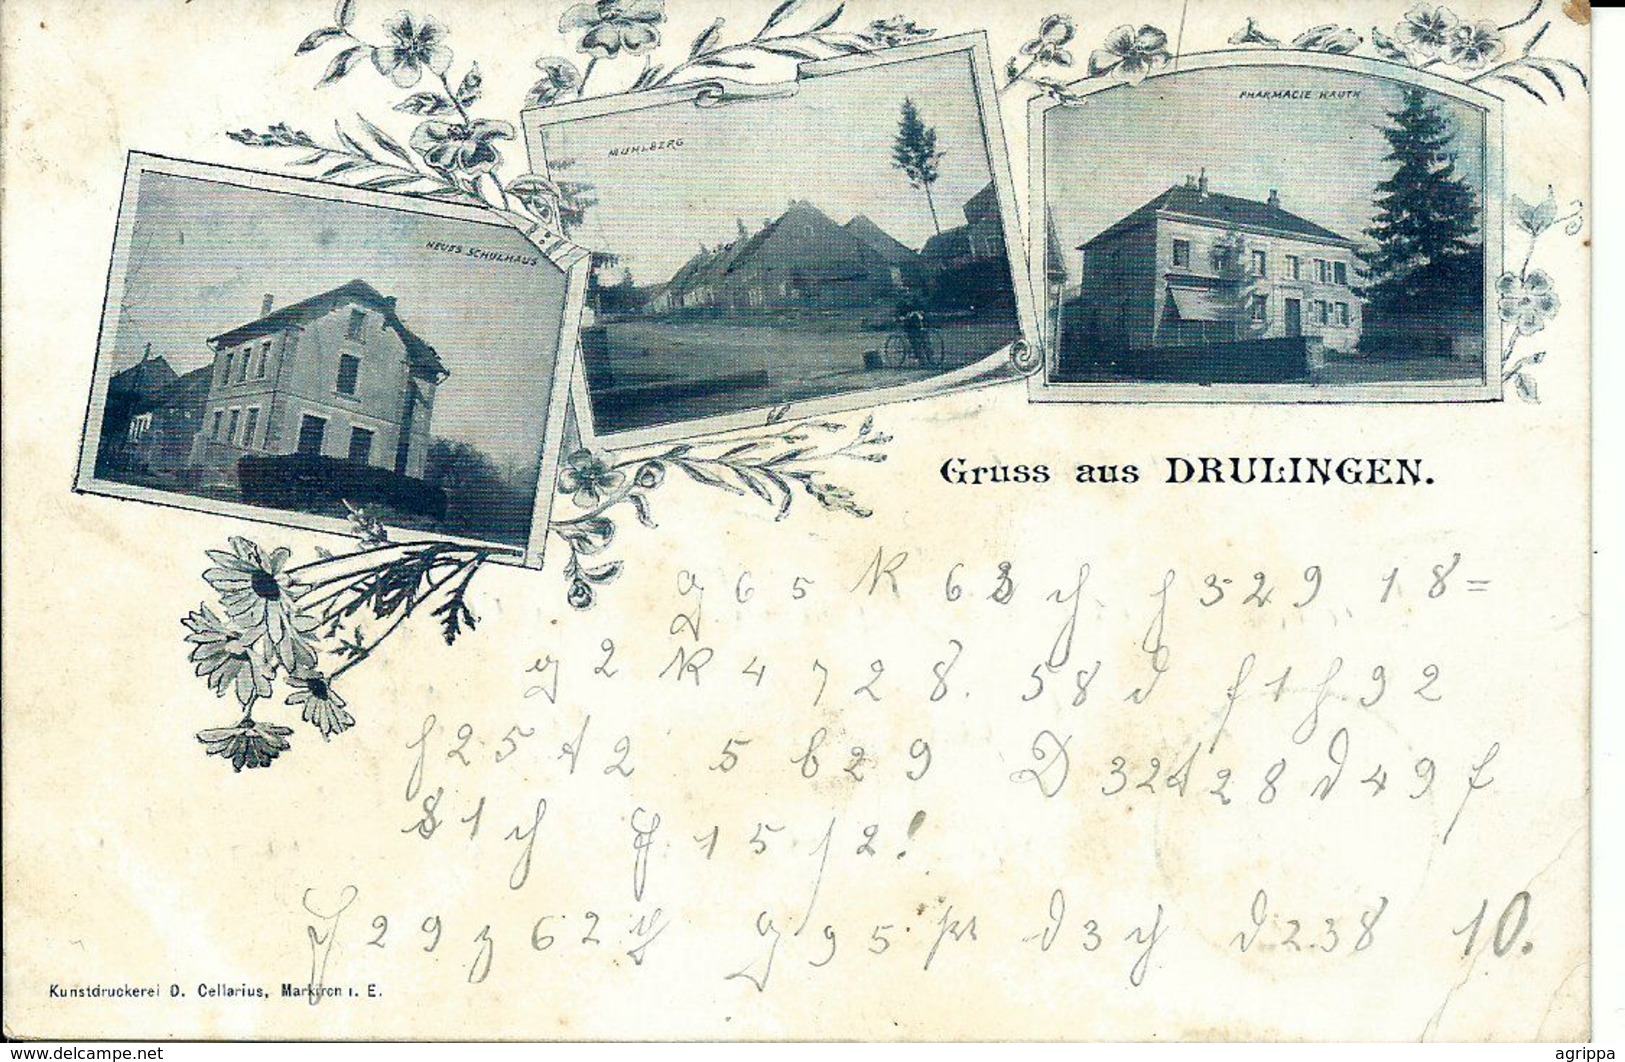 NEUES SCHULHAUS
MUHLBERG
PHARMACIE HAUTH
Gruss aus DRULINGEN.
g 6 5 K 6 3 ch h 3 2 9 1 8 =
g 2 K 4 7 2 8. 5 8 d f 1 h 9 2
h 2 5 t 2 5 b 2 9 D 3 2 t 2 8 d 4 9 f
8 1 ch F 1 5 / 2 !
H 2 9 z 6 2 ch g 9 5 d 3 ch d 2 3 8 10.
Kunstdruckerei D. Cellarius, Markirch i. E.
www.delcampe.net
agrippa